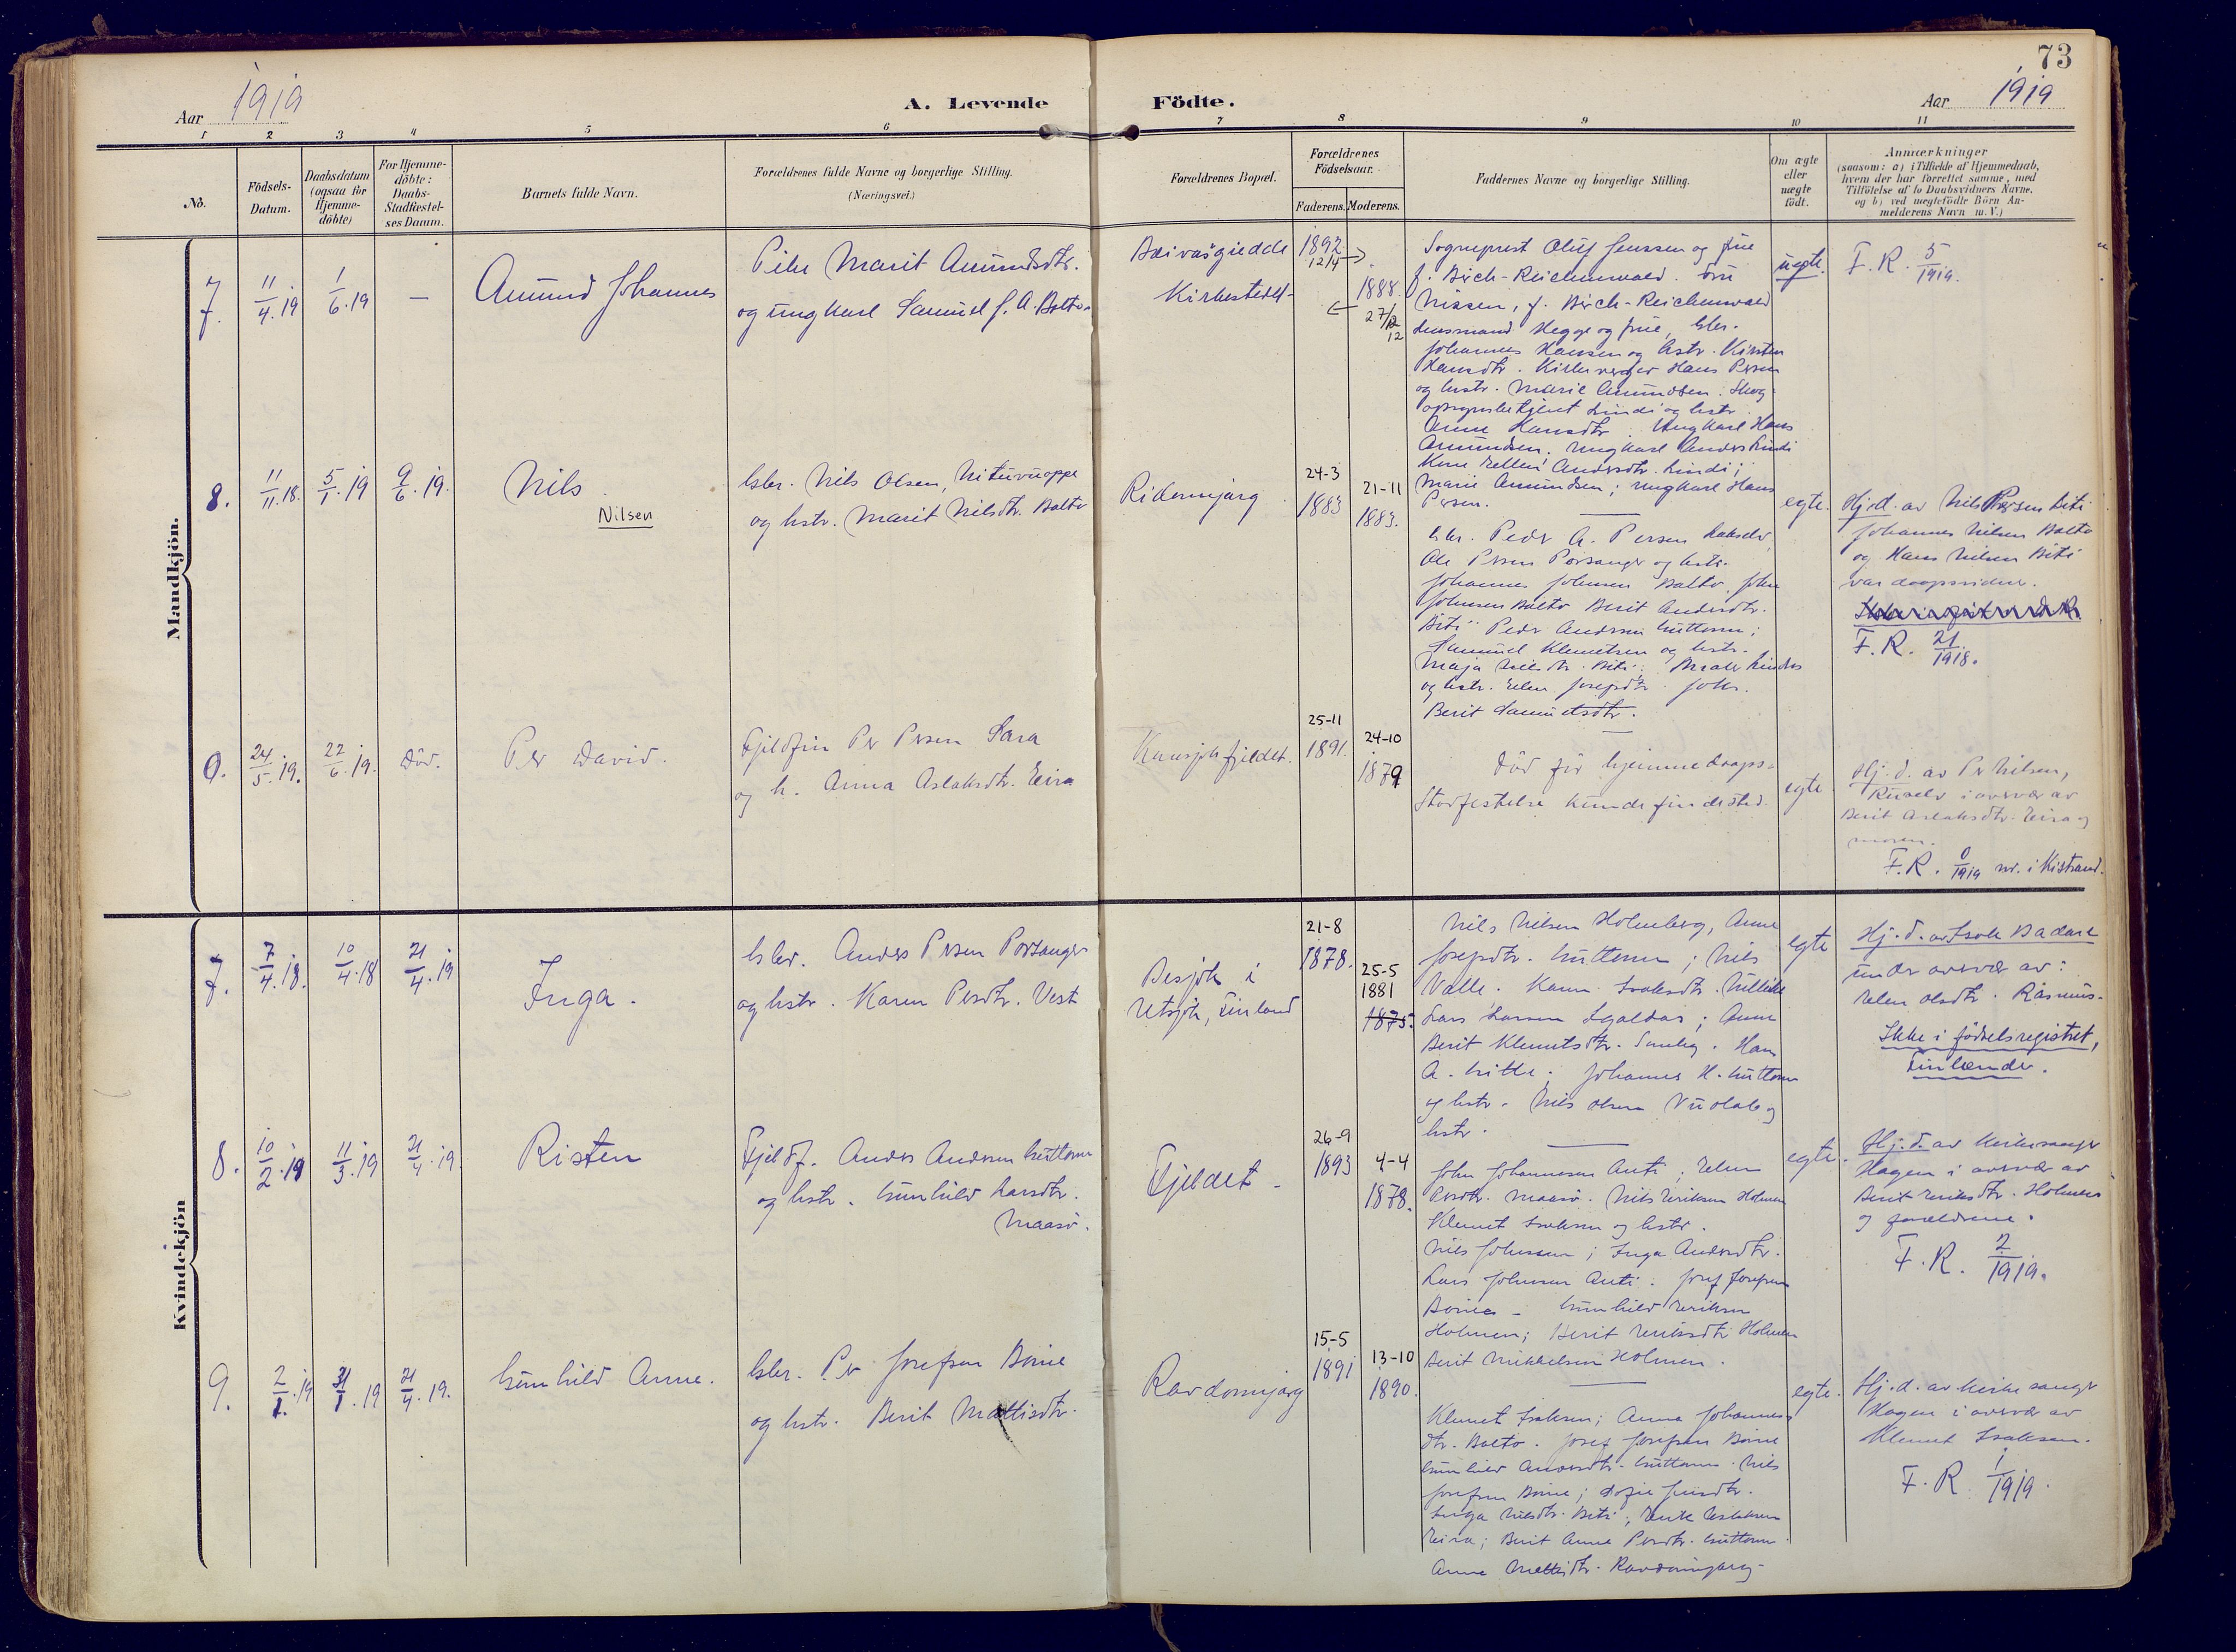 73
Aar 1919
A. Levende Födte.
Aar 1919
1 2 3 4 5 6 7 8 9 10 11
No.
Födsels-
Datum.
Daabsdatum
(ogsaa for
Hjemme-
döbte)
For Hjemme-
döbte:
Daabs-
Stadfæstel-
ses Datum.
Barnets fulde Navn.
Forældrenes fulde Navne og borgerlige Stilling.
(Næringsvei.)
Forældrenes Bopæl.
Forældrenes
Födselsaar.
Faderens. Moderens.
Faddernes Navne og borgerlige Stilling.
Om ægte
eller
uægte
födt.
Anmærkninger
(saasom: a) i Tilfælde af Hjemmedaab,
hvem der har forrettet samme, med
Tilföielse af to Daabsvidners Navne.
og b) ved uægtefödte Börn An-
melderens Navn m. V.)
Mandkjön.
7.
11/4.19
1/6.19
—
Amund Johannes
Pike Marit Amundsdtr.
og ungkarl Samuel J. A. Balto.
Kirkestedet
1892
12/4
1888.
27/12
12
Sogneprest Oluf Jenssen og frue
f. Birch-Reichenwald. Fru
Nissen, f. Birch-Reichenwald
Lensmand Hegge og frue, Gbr.
Johannes Hansen og hstr. Kirsten
Hansdtr. Kirkeverger Hans Persen
og hstr. Marie Amundsen. Skog-
opsynsbetjent Lindi og hstr.
Anne Hansdtr. Ungkarl Hans
Amundsen. Ungkarl Anders Lindi
Kone Ellen Andersdtr. Lindi;
Marie Amundsen; ungkarl Hans
Persen.
uegte.
F. R. 5/1919.
8.
11/11.18.
5/1.19
9/6.19.
Nils
Nilsen
Gbr. Nils Olsen,
og hstr. Marit Nilsdtr. Balto
Ridomnjarg
24-3
1883
21-11
1883.
Gbr. Peder A. Persen Lakselv
Ole Persen Porsanger og hstr.
Johannes Johnsen Balto. John
Johnsen Balto Berit Andersdtr.
Biti Peder Andersen Guttorm;
Samuel Klemetsen og hstr.
Maja Nilsdtr. Biti;
og hstr. Elen Josefsdtr.
Berit Samuelsdtr.
egte.
Hj.d. av Nils Persen Biti
Johannes Nilsen Balto
og Hans Nilsen Biti
var daapsvidner.
F. R. 21/1918.
9.
24/5.19.
22/6.19.
Död.
Per David.
Fjeldfin Per Persen Sara
og h. Anna Aslaksdtr. Eira
25-11
1891.
24-10
1879
Död för hjemmedaaps-
stadfestelse kunde finde sted.
egte
Hj.d. av Per Nilsen,
i overvær av
Berit Aslaksdtr. Eira og
moren.
F. R. 0/1919 nr. i Kistrand.
Kvindekjön
7.
7/4.18.
10/4.18
21/4.19
Inga.
Gbr. Anders Persen Porsanger
og hstr. Karen Persdtr. Vest
Besjok i
Utsjok, Finland
21-8
1878.
25-5
1881
1875.
Nils Nilsen Holmberg, Anne
Josefsdtr. Guttorm; Nils
Valle. Karen Isaksdtr.
Lars Larsen Igaldas; Anne
Berit Klemetsdtr. Hans
A. Johannes H. Guttorm
og hstr. Nils Olsen Vuolab og
hstr.
egte
Hj.d. av Isak Badare
under overvær av:
Elen Olsdtr. Rasmus.
Ikke i födselsregistret,
Finlænder.
8.
10/2.19
11/3.19
21/4.19
Risten
Fjeldf. Anders Andersen Guttorm
og hstr. Gunhild Larsdtr.
Maasö.
Fjeldet
26-9
1893
4-4
1878.
John Johannesen Anti; Elen
Persdtr. Maasö. Nils Eriksen Holmen
Klemet Isaksen og hstr.
Nils Johnsen; Inga Andersdtr.
Lars Johnsen Anti; Josef Josefsen
Boine - Gunhild Eriksen
Holmen; Berit Eriksdtr. Holmen
Berit Mikkelsen Holmen.
egte.
Hj.d. av kirkesanger
Hagen i overvær av
Berit Eriksdtr. Holmen
og forældrene.
F. R. 2/1919.
9.
2/1.19
31/1.19
21/4.19.
Gunhild Anne.
Gbr. Per Josefsen Boine
og hstr. Berit Mattisdtr.
Ravdomnjarg
15-5
1891
13-10
1890.
Klemet Isaksen; Anna Johannes-
dtr. Balto. Josef Josefsen Boine
Gunhild Andersdtr. Guttorm. Nils
Josefsen Boine; Sofie Jensdtr.
Inga Nilsdtr. Biti; Aslaksen
Eira; Berit Anne Persdtr. Guttorm.
Anne Mattisdtr. Ravdomnjarg
egte.
Hj.d. av kirkesanger
Hagen i overvær av
Klemet Isaksen.
F. R. 1/1919.